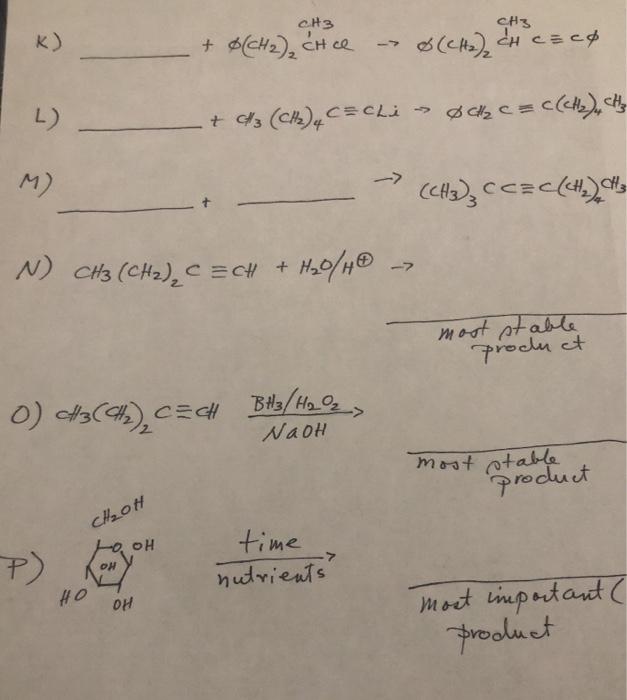 K) ______ + ∅(CH2)2 CH(CH3) Cl → ∅(CH2)2 CH(CH3) C≡C∅
L) ______ + CH3(CH2)4C≡CLi → ∅CH2C≡C(CH2)4CH3
M) ______ + ______ → (CH3)3CC≡C(CH2)4CH3
N) CH3(CH2)2C≡CH + H2O/H⊕ →
most stable
product
O) CH3(CH2)2C≡CH BH3/H2O2 →
NaOH
most stable
product
CH2OH
P) O OH time →
OH nutrients
HO OH
most important (
product